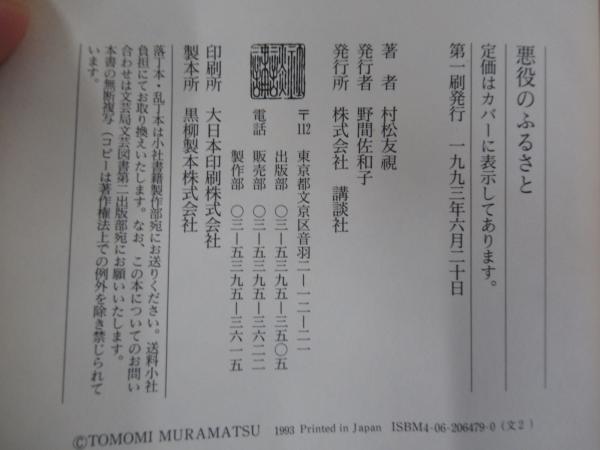 悪役のふるさと
定価はカバーに表示してあります。
第一刷発行 一九九三年六月二十日
著者 村松友視
発行者 野間佐和子
発行所 株式会社 講談社
〒112 東京都文京区音羽二―一二―二一
出版部 〇三―五三九五―三五〇五
電話 販売部 〇三―五三九五―三六二二
製作部 〇三―五三九五―三六一五
印刷所 大日本印刷株式会社
製本所 黒柳製本株式会社
落丁本・乱丁本は小社書籍製作部宛にお送りください。送料小社
負担にてお取り換えいたします。なお、この本についてのお問い
合わせは文芸局文芸図書第二出版部宛にお願いいたします。
本書の無断複写（コピーは著作権法上での例外を除き禁じられて
います。
©TOMOMI MURAMATSU 1993 Printed in Japan ISBM4-06-206479-0 (文2)